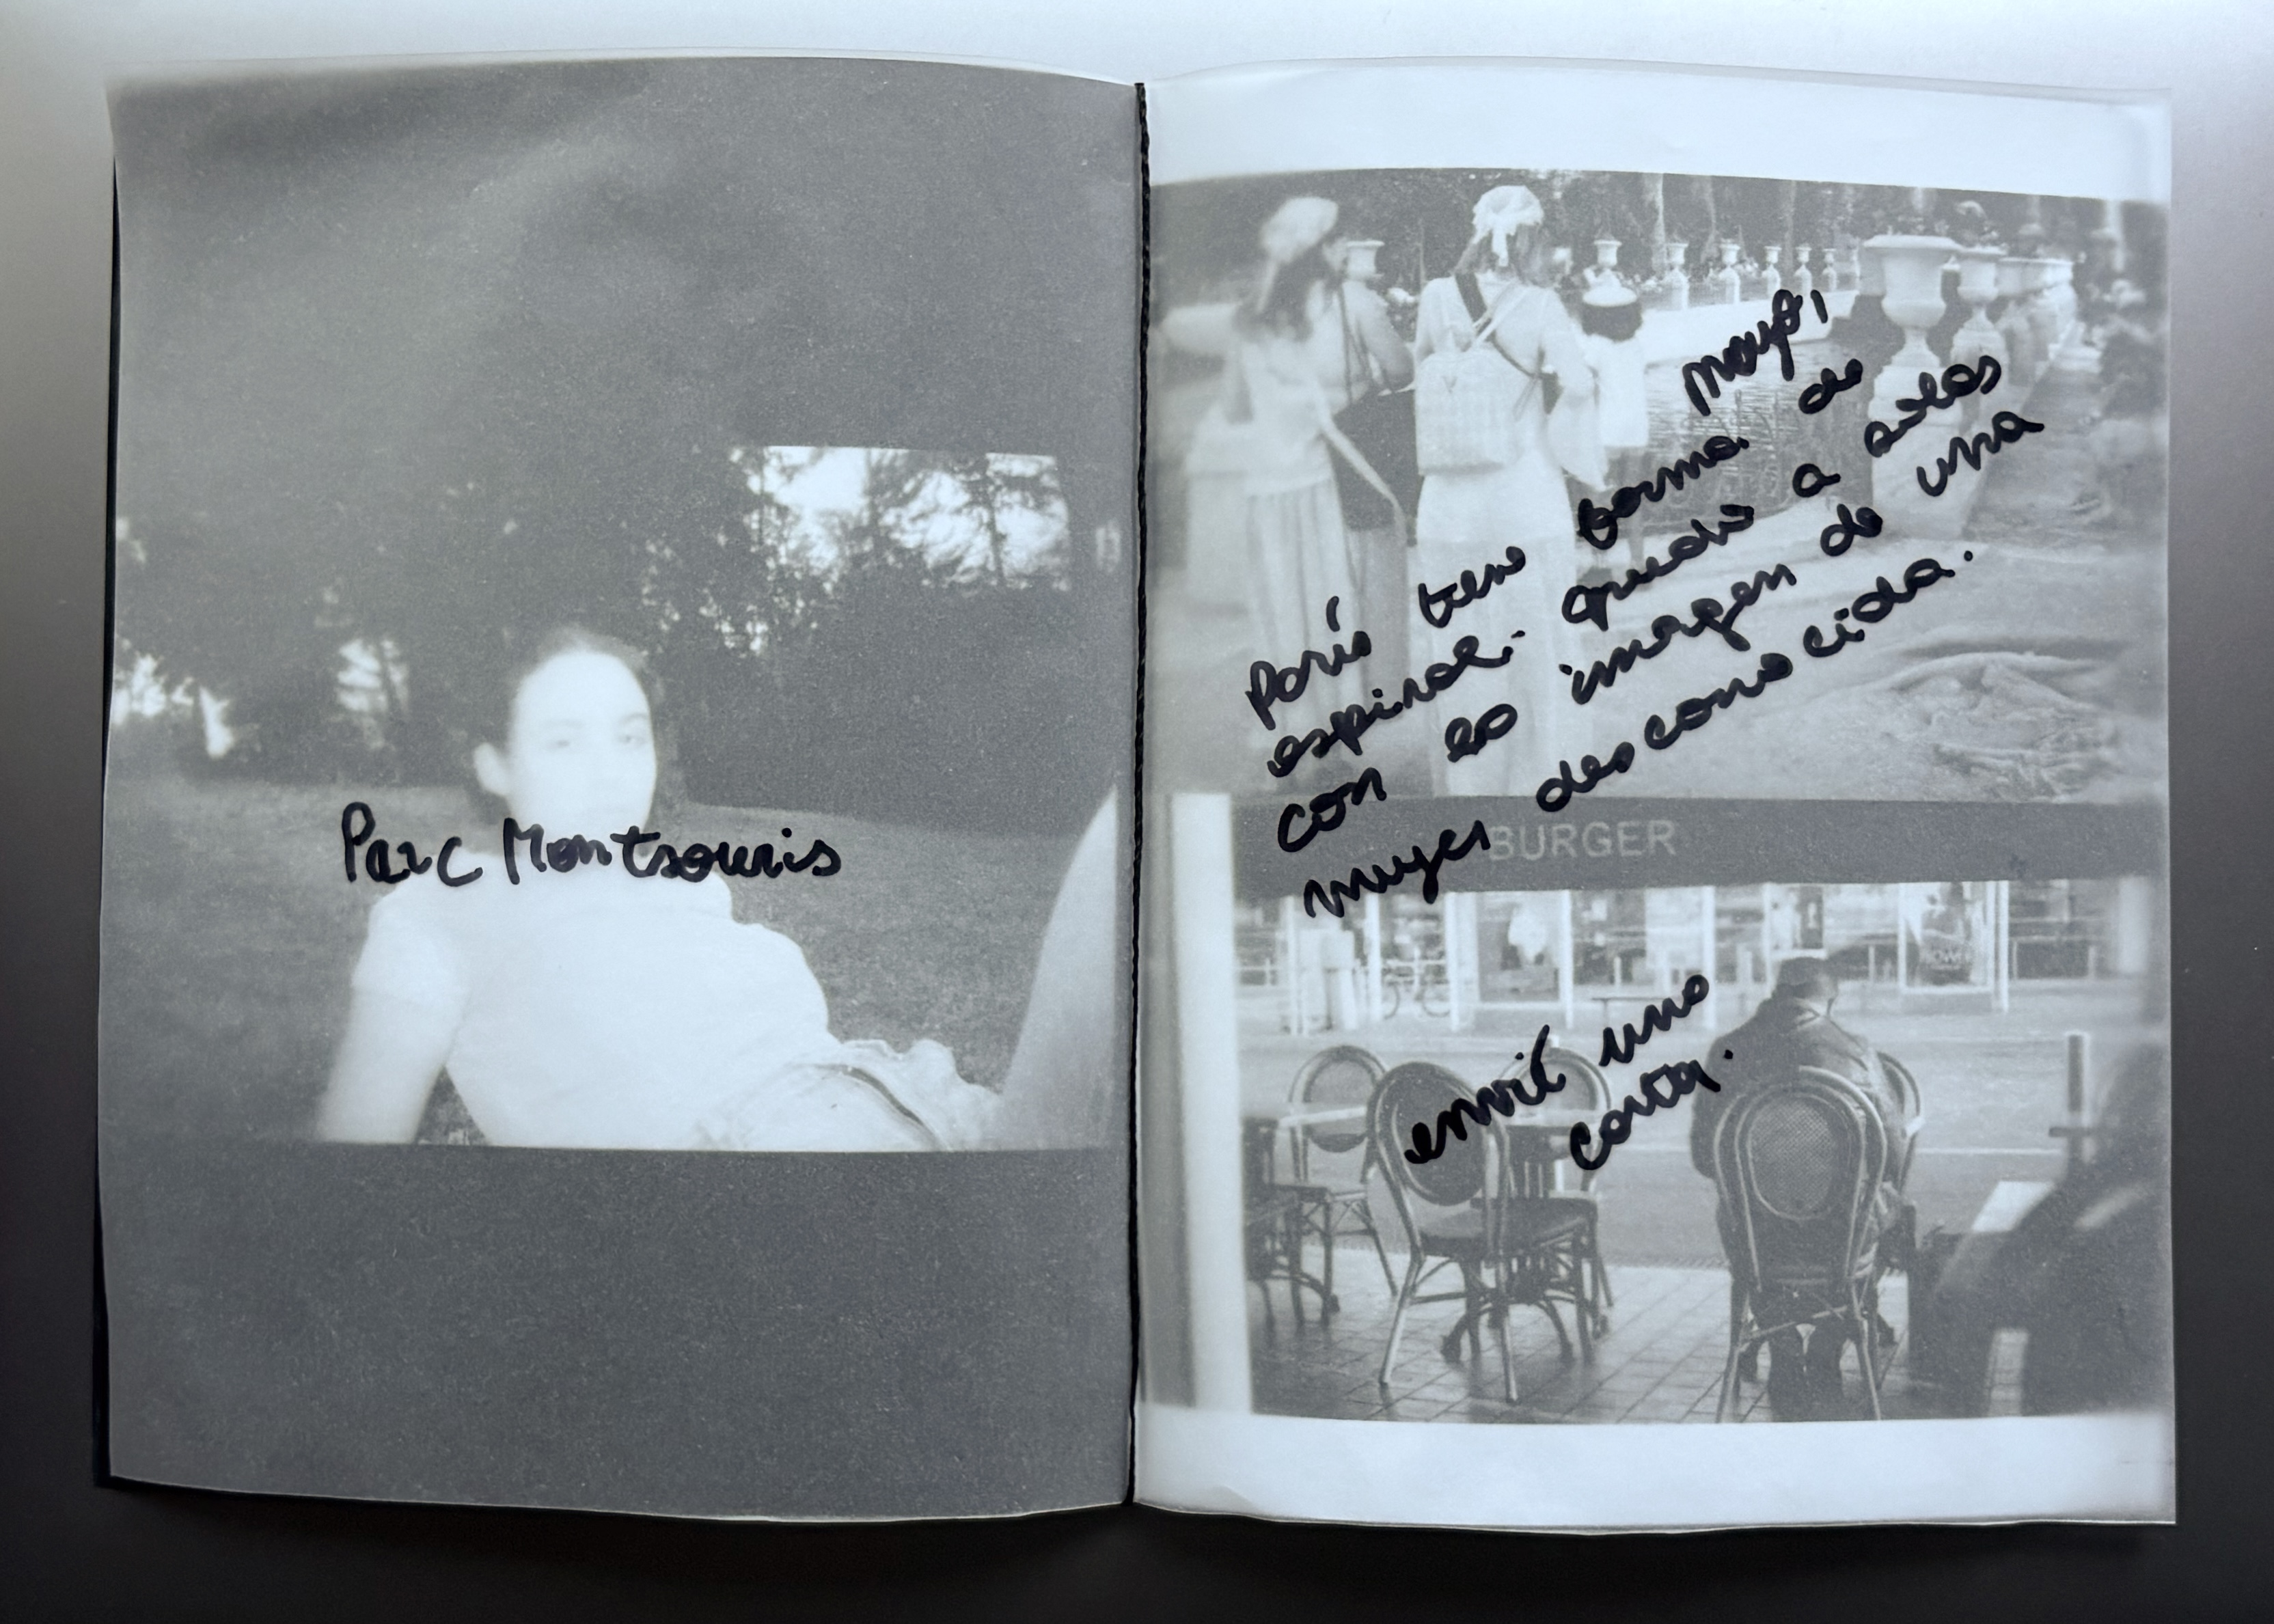 Parc Montsouris
mayo,
París tiene forma de
espiral: quedé a solas
con la imagen de una
mujer desconocida.
BURGER
envié una
carta.